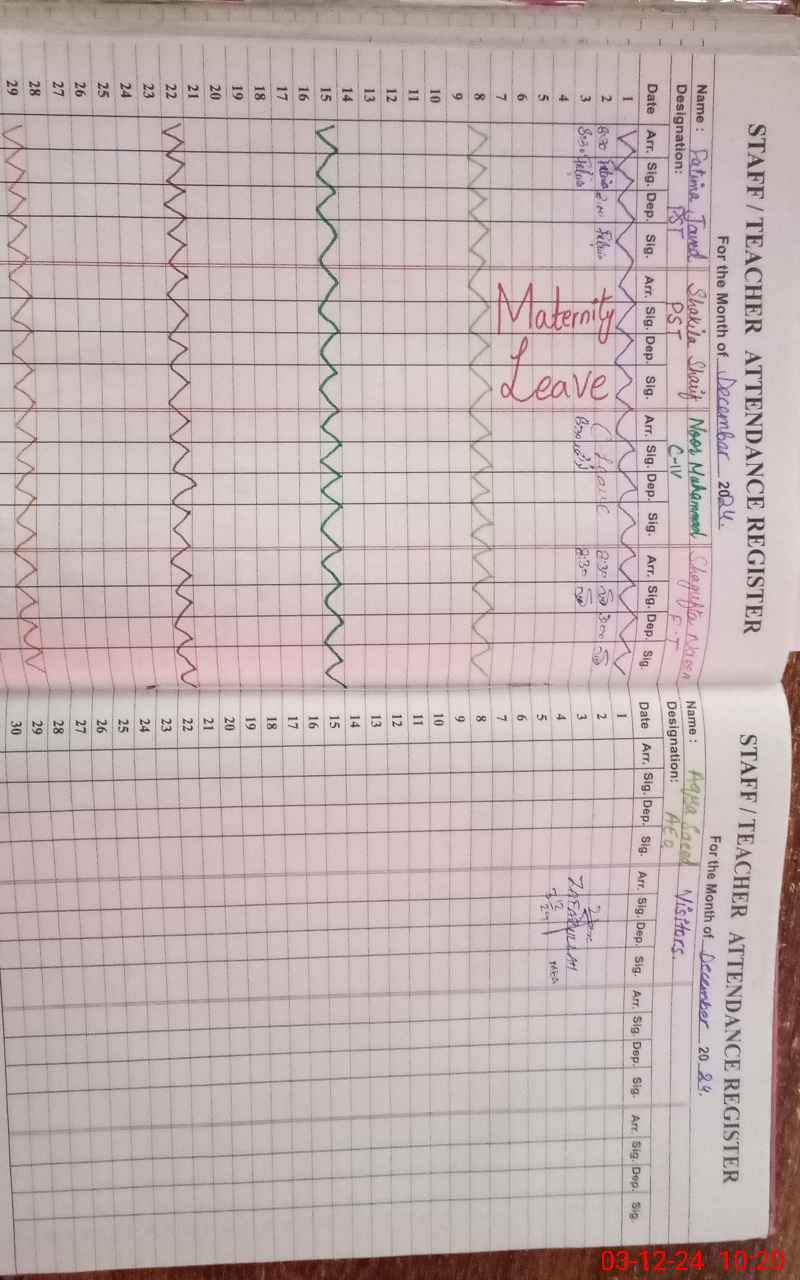 STAFF / TEACHER ATTENDANCE REGISTER
For the Month of December 2024.
Name : Fatima Javed Shakila Sharif Noor Muhammad Shagufta
Designation: PST PST C-IV
Date Arr. Sig. Dep. Sig. Arr. Sig. Dep. Sig. Arr. Sig. Dep. Sig. Arr. Sig. Dep. Sig.
1
2 8:30 Leave 8:30
3 8:30 8:30 8:30
Maternity
Leave
4
5
6
7
8
9
10
11
12
13
14
15
16
17
18
19
20
21
22
23
24
25
26
27
28
29
STAFF / TEACHER ATTENDANCE REGISTER
For the Month of December 2024.
Name : Aqsa Saeed Visitors.
Designation: AEO
Date Arr. Sig. Dep. Sig. Arr. Sig. Dep. Sig. Arr. Sig. Dep. Sig. Arr. Sig. Dep. Sig.
1
2
3
ZAFARULLAH
4
5
6
7
8
9
10
11
12
13
14
15
16
17
18
19
20
21
22
23
24
25
26
27
28
29
30
03-12-24 10:20